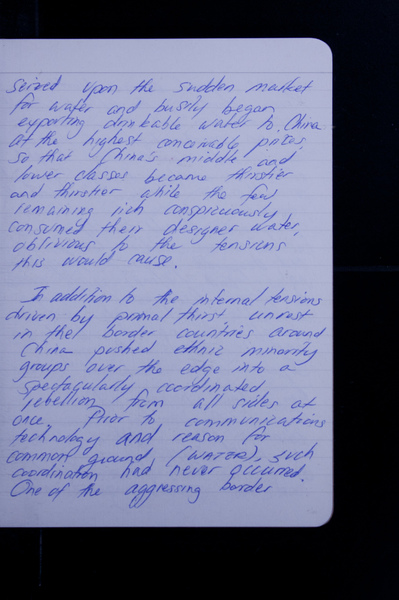 seized upon the sudden market
for water and busily began
exporting drinkable water to China
at the highest conceivable prices,
so that China's middle and
lower classes became thirstier
and thirstier while the few
remaining rich conspicuously
consumed their designer water,
oblivious to the tensions
this would cause.
In addition to the internal tensions
driven by primal thirst unrest
in the border countries around
China pushed ethnic minority
groups over the edge into a
spectacularly coordinated
rebellion from all sides at
once. Prior to communications
technology and reason for
common ground (WATER), such
coordination had never occurred.
One of the aggressing border